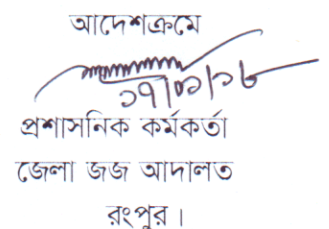 আদেশক্রমে
১৭/০১/১৮
প্রশাসনিক কর্মকর্তা
জেলা জজ আদালত
রংপুর।